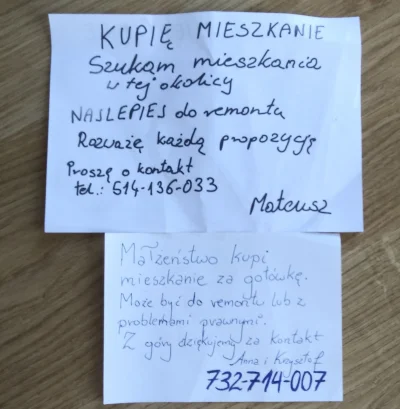 KUPIĘ MIESZKANIE
Szukam mieszkania
w tej okolicy
NAJLEPIEJ do remontu
Rozważę każdą propozycję
Proszę o kontakt
tel.: 514-136-033
Mateusz
Małżeństwo kupi
mieszkanie za gotówkę.
Może być do remontu lub z
problemami prawnymi.
Z góry dziękujemy za kontakt
Anna i Krzysztof
732-714-007